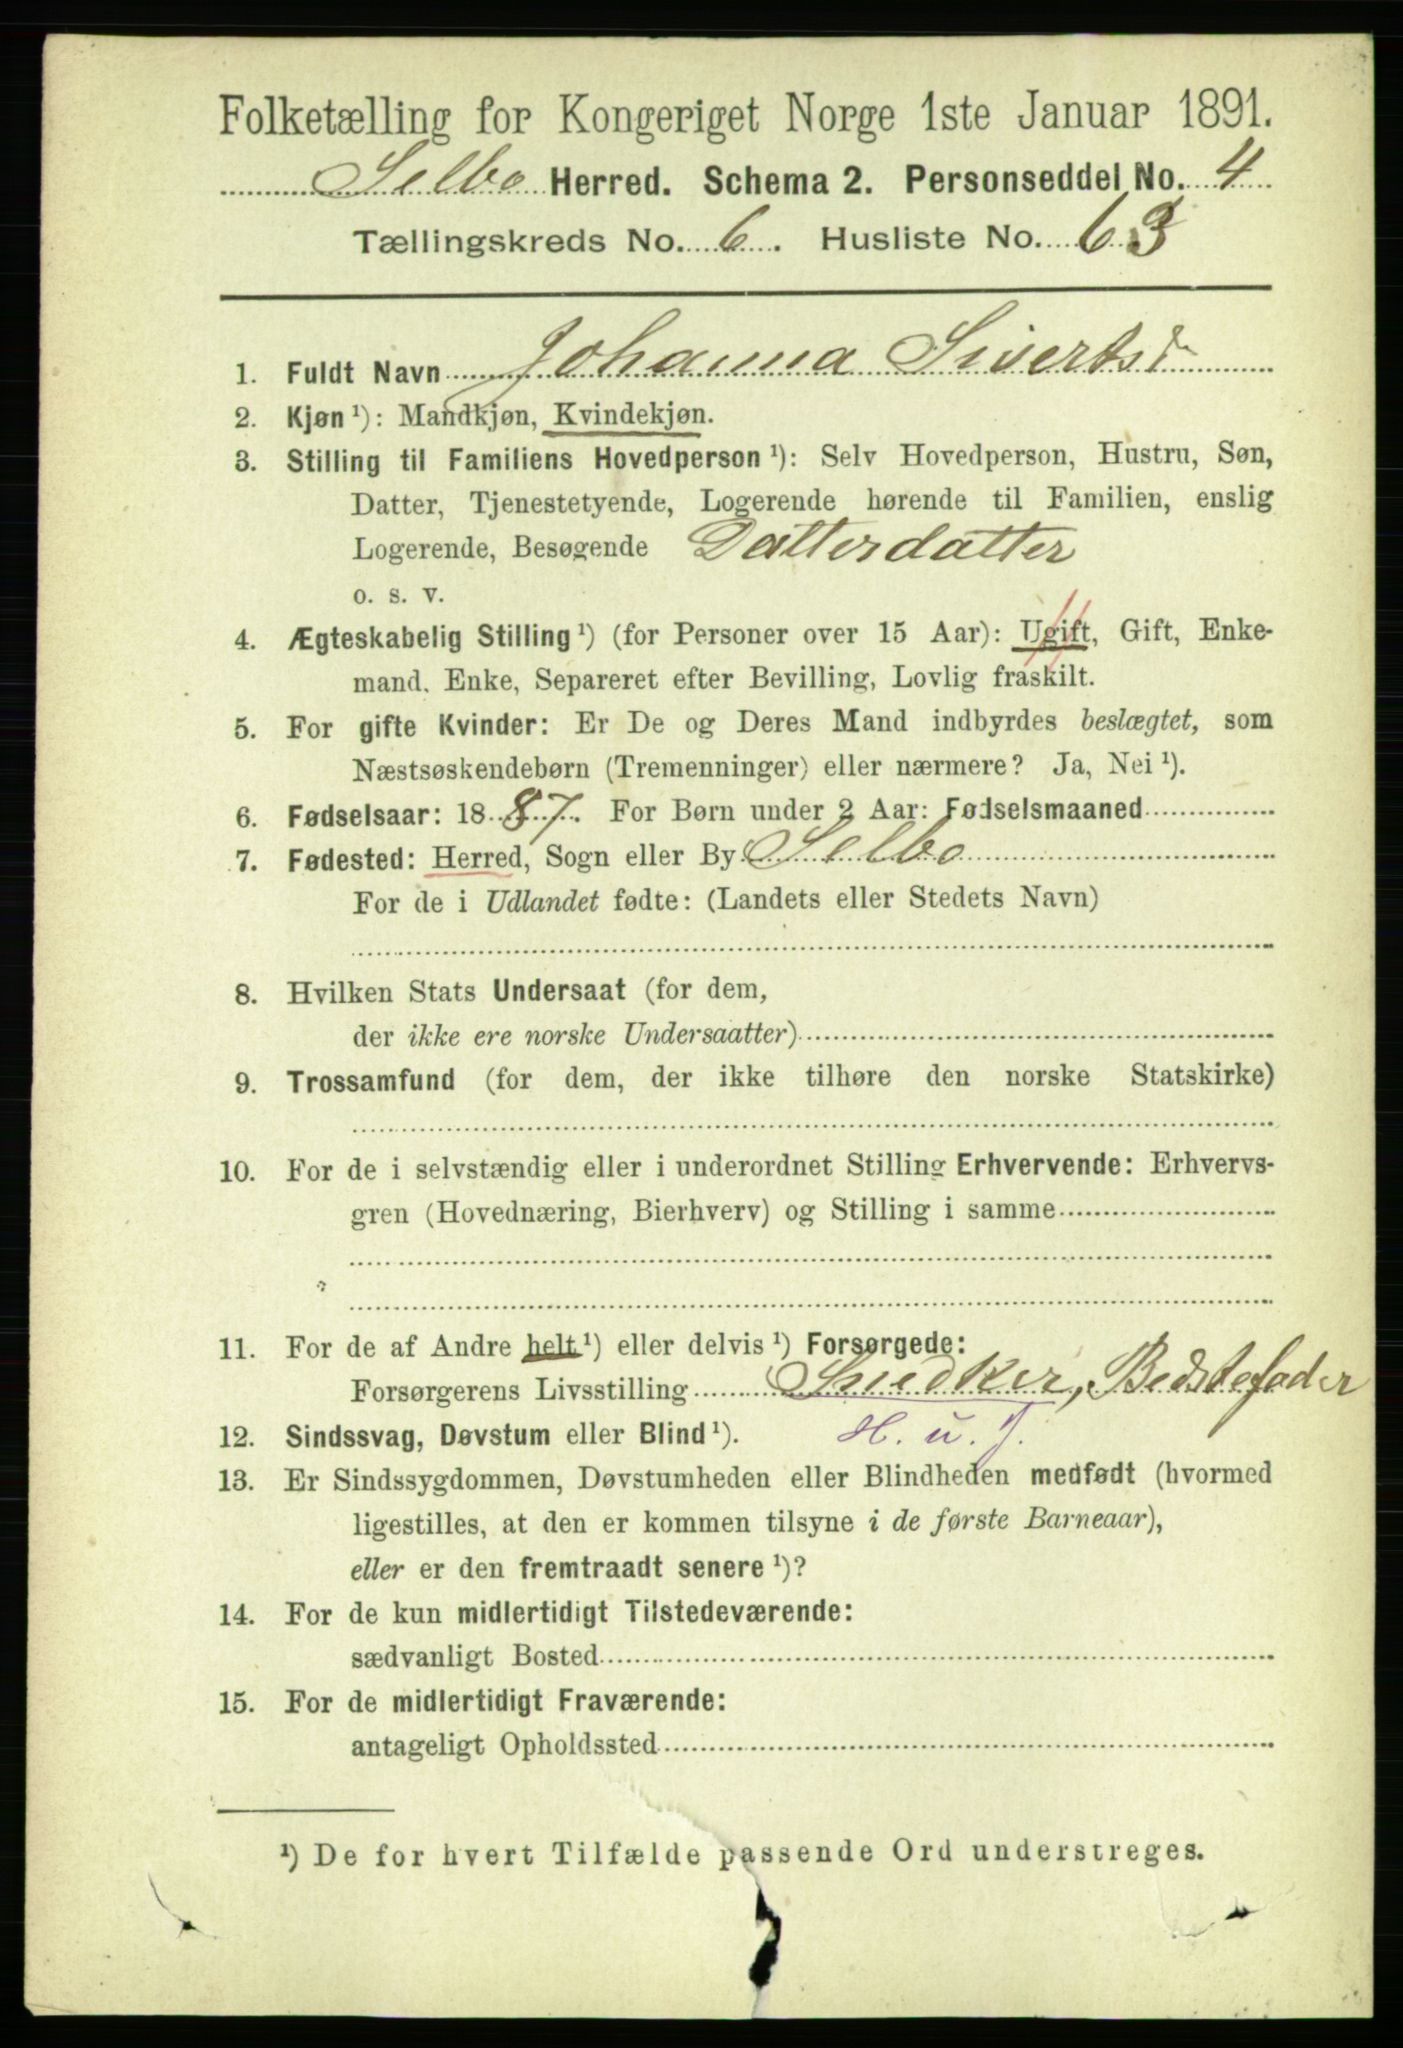 Folketælling for Kongeriget Norge 1ste Januar 1891.
Selbo Herred. Schema 2. Personseddel No. 4
Tællingskreds No. 6. Husliste No. 63
1. Fuldt Navn Johanna Sivertsdr
2. Kjøn ¹): Mandkjøn, Kvindekjøn.
3. Stilling til Familiens Hovedperson ¹): Selv Hovedperson, Hustru, Søn,
Datter, Tjenestetyende, Logerende hørende til Familien, enslig
Logerende, Besøgende Datterdatter
o. s. v.
4. Ægteskabelig Stilling ¹) (for Personer over 15 Aar): Ugift, Gift, Enke-
mand, Enke, Separeret efter Bevilling, Lovlig fraskilt.
5. For gifte Kvinder: Er De og Deres Mand indbyrdes beslægtet, som
Næstsøskendebørn (Tremenninger) eller nærmere? Ja, Nei ¹).
6. Fødselsaar: 1887. For Børn under 2 Aar: Fødselsmaaned
7. Fødested: Herred, Sogn eller By Selbo
For de i Udlandet fødte: (Landets eller Stedets Navn)
8. Hvilken Stats Undersaat (for dem,
der ikke ere norske Undersaatter)
9. Trossamfund (for dem, der ikke tilhøre den norske Statskirke)
10. For de i selvstændig eller i underordnet Stilling Erhvervende: Erhvervs-
gren (Hovednæring, Bierhverv) og Stilling i samme
11. For de af Andre helt ¹) eller delvis ¹) Forsørgede:
Forsørgerens Livsstilling Snedker, Bedstefader
12. Sindssvag, Døvstum eller Blind ¹). H. u. J.
13. Er Sindssygdommen, Døvstumheden eller Blindheden medfødt (hvormed
ligestilles, at den er kommen tilsyne i de første Barneaar),
eller er den fremtraadt senere ¹)?
14. For de kun midlertidigt Tilstedeværende:
sædvanligt Bosted
15. For de midlertidigt Fraværende:
antageligt Opholdssted
¹) De for hvert Tilfælde passende Ord understreges.